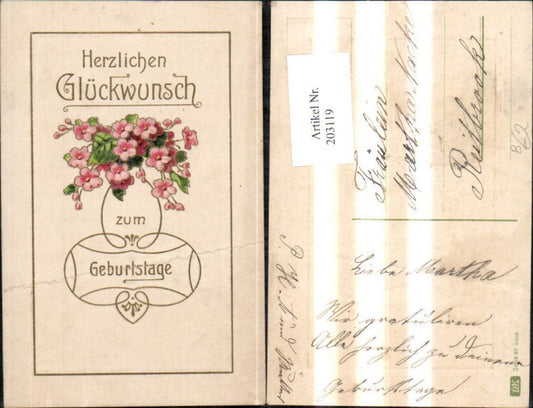 Herzlichen
Glückwunsch
zum
Geburtstage
Artikel Nr.
203119
Fräulein
Martha
Liebe Martha
Wir gratuliren
Alle herzlich zu deinem
Geburtstage